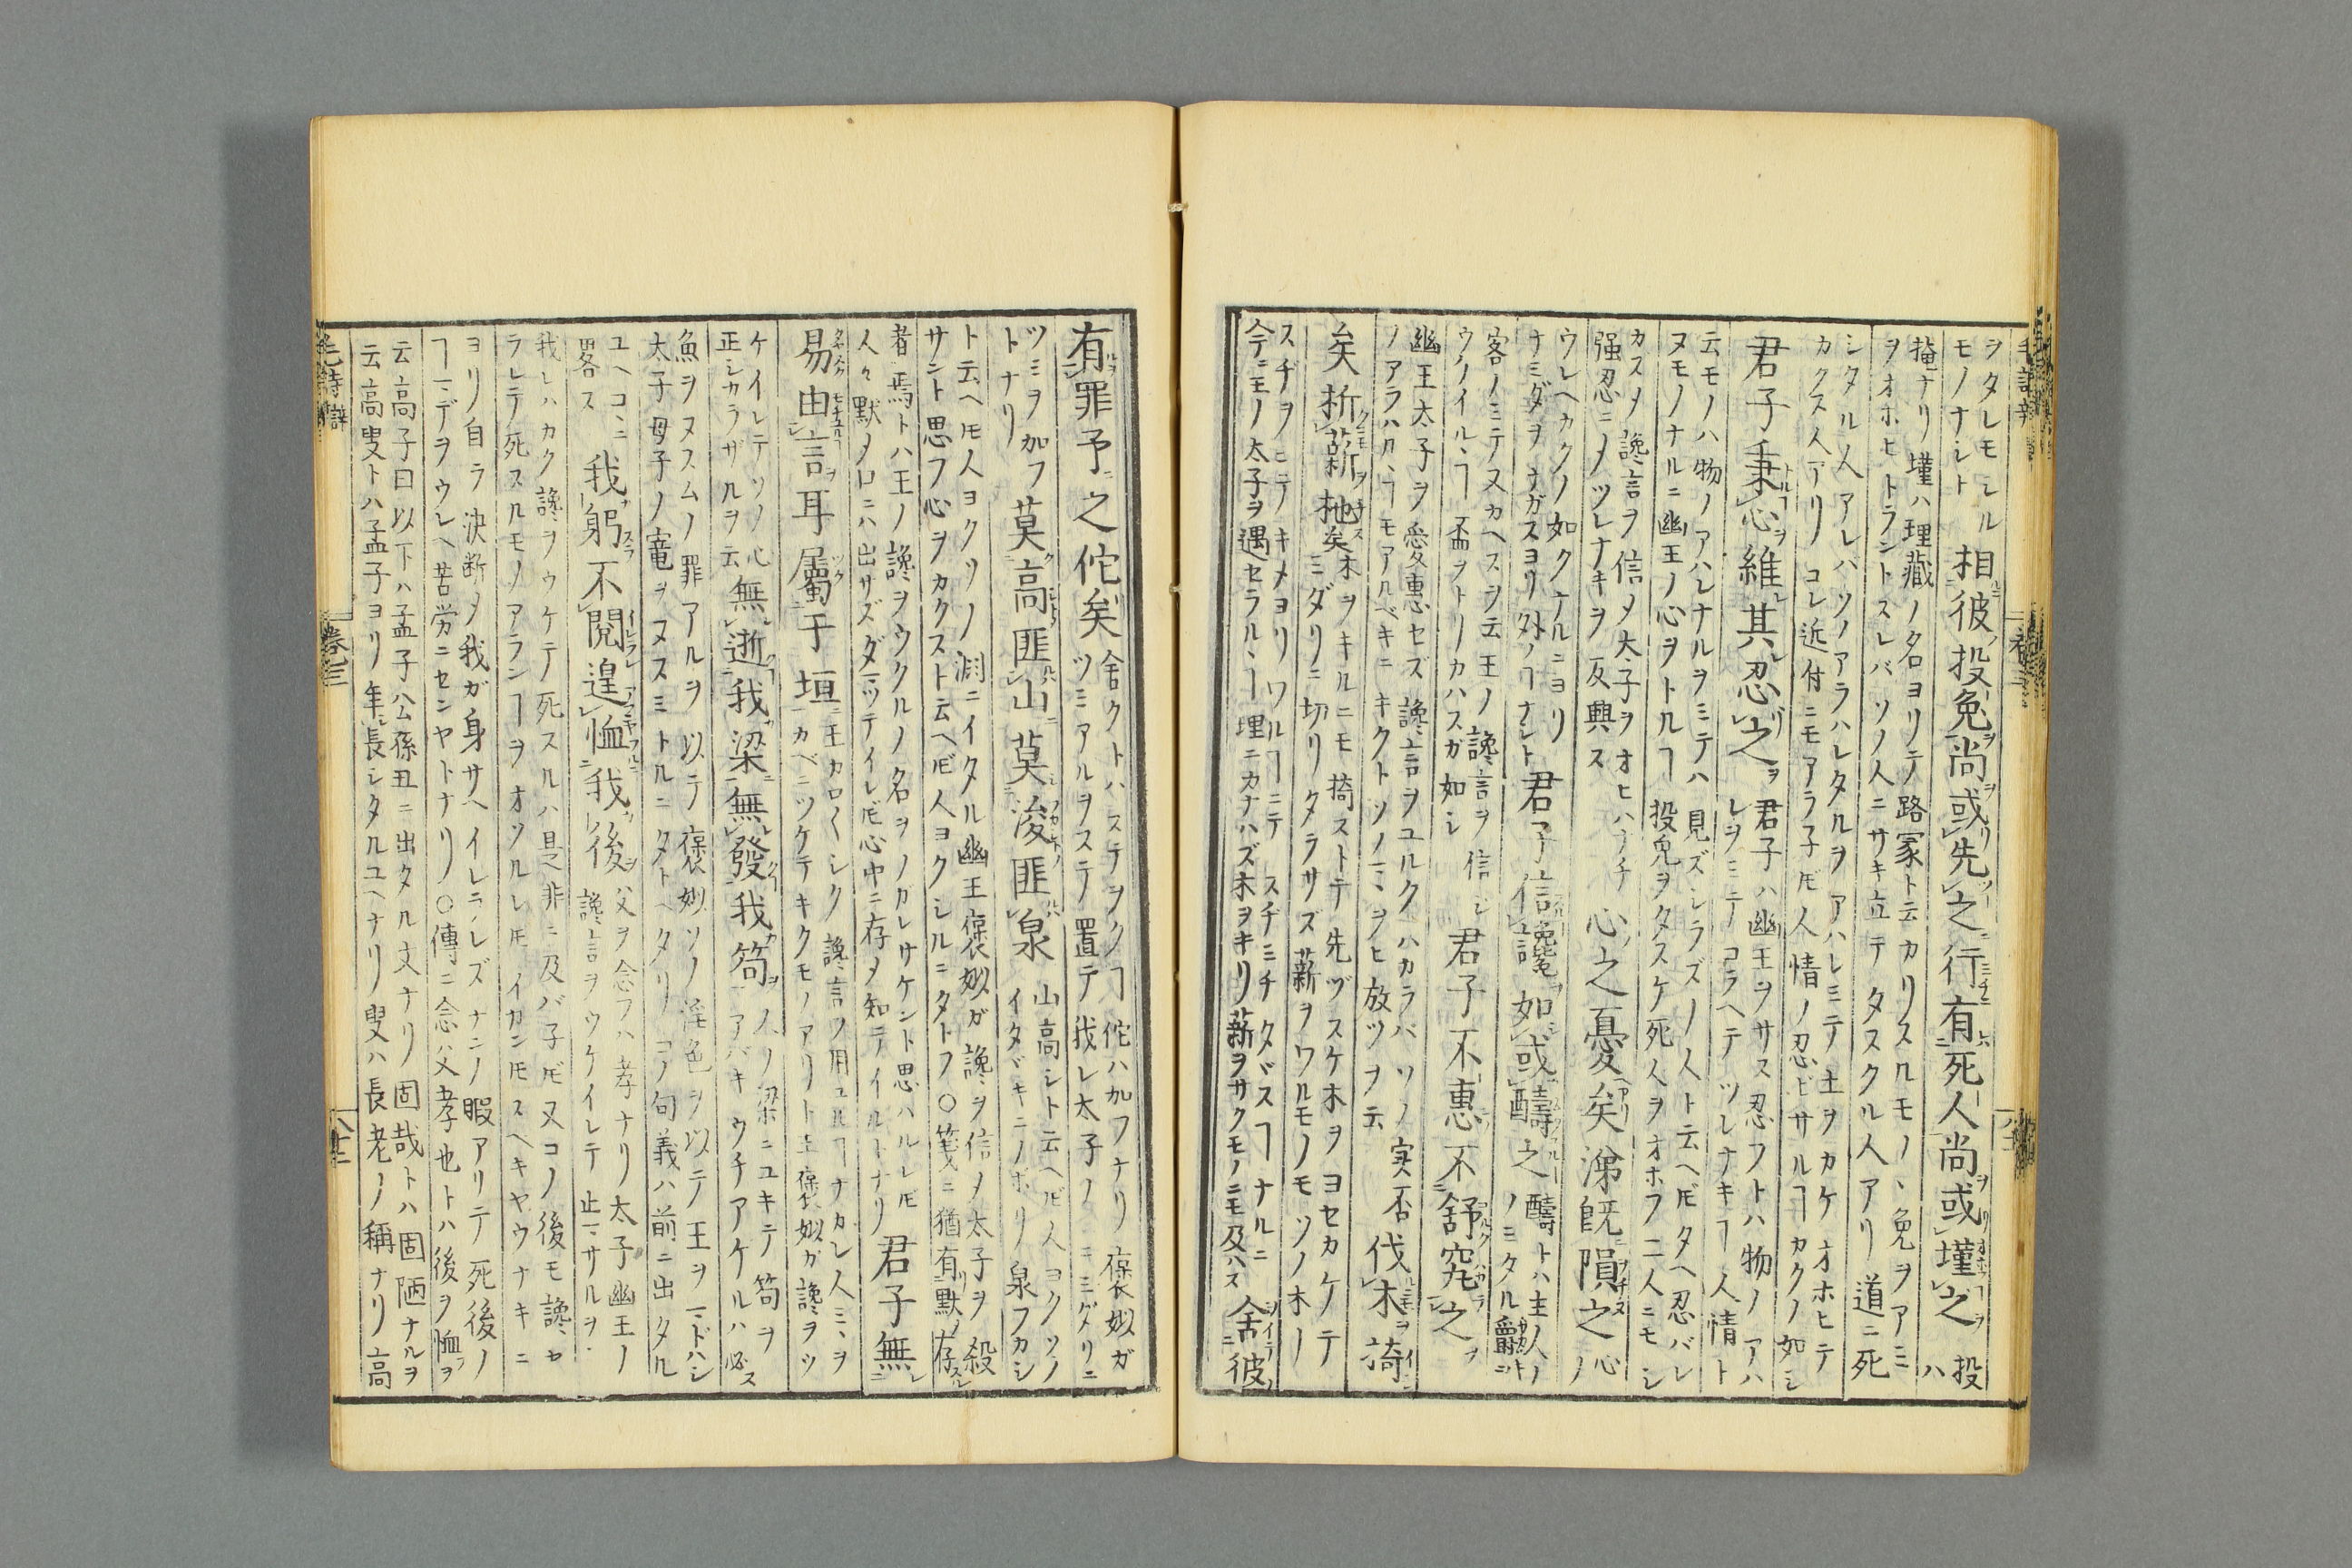 ヲタレモシル
モノナシト
相彼投兔尚或先之行有死人尚或墐之投ハ
掩ナリ墐ハ理藏ノ名ヨリテ路冢ト云カリスルモノ、兔ヲアミ
ヲオホヒトラントスレバソノ人ニサキ立テタスクル人アリ道ニ死
シタル人アレバソノアラハレタルヲアハレミテ土ヲカケオホヒテ
カクス人アリコレ近付ニモアラ子ドモ人情ノ忍ビサルヿカクノ如シ
君子秉心維其忍之
君子ハ幽王ヲサス忍フトハ物ノアハ
レヲミテコラヘテツレナキヿ人情ト
云モノハ物ノアハレナルヲミテハ見ズシラズノ人ト云ヘドモタヘ忍バレ
ヌモノナルニ幽王ノ心ヲトルヿ投兔ヲタスケ死人ヲオホフ二人ニモシ
カスメ讒言ヲ信メ太子ヲオヒハナチ
强忍ニメツレナキヲ反興ス
心之憂矣涕旣隕之心ノ
ウレヘカクノ如クナルニヨリ
ナミダヲナガスヨリ外ノヿナシト
君子信讒如或醻之
醻トハ主人ノ
ノミタル爵ニ
客ノミテヌカヘスヲ云王ノ讒言ヲ信ジ
ウケイル、ヿ盃ヲトリカハスガ如シ
君子不惠不舒究之
幽王太子ヲ愛惠セズ讒言ヲユルクハカラバソノ実否
ノアラハルヽヿモアルベキニキクトソノママヲヒ放ツヲ云
伐木掎
矣析薪杝矣
木ヲキルニモ掎ストテ先ヅスケ木ヲヨセカケテ
ミダリニ切リタラサズ薪ヲワルモノモソノ木ノ
スヂヲミテキメヨリワルヿニテスヂミチタヾスヿナルニ
今王ノ太子ヲ遇セラル、ヿ理ニカナハズ木ヲキリ薪ヲサクモノニモ及ハス
舍彼
有罪予之佗矣
舍クトハステヲクヿ佗ハ加フナリ褒姒ガ
ツミアルヲステ置テ我レ太子ノミミダリニ
ツミヲ加フ
トナリ
莫高匪山莫浚匪泉
山高シト云ヘドモ人ヨクソノ
イタヾキニノボリ泉フカシ
ト云ヘドモ人ヨクソノ淵ニイタル幽王褒姒ガ讒ヲ信メ太子ヲ殺
サント思フ心ヲカクスト云ヘドモ人ヨクシルニタトフ○箋ニ猶有默存
者焉トハ王ノ讒ヲウクルノ名ヲノガレサケント思ハルレドモ
人々默メ口ニハ出サズダマツテイレドモ心中ニ存メ知テイルトナリ
君子無
易由言耳屬于垣
王カロ〱シク讒言ヲ用ユルヿナカレ人ミヽヲ
カベニツケテキクモノアリト王褒姒ガ讒ヲツ
ケイレテソノ心
正シカラザルヲ云
無逝我梁無發我笱
人ノ梁ニユキテ笱ヲ
アバキウチアケルハ必ス
魚ヲヌスムノ罪アルヲ以テ褒姒ソノ淫色ヲ以テ王ヲマドハシ
太子母子ノ寵ヲヌスミトルニタトヘタリコノ句義ハ前ニ出タル
ユヘコヽニ
畧ス
我躬不閱遑恤我後
父ヲ念フハ孝ナリ太子幽王ノ
讒言ヲウケイレテ止マサルヲ
我レハカク讒ヲウケテ死スルハ是非ニ及バ子ドモ又コノ後モ讒セ
ラレテ死スルモノアランヿヲオソルレドモイカンドモスヘキヤウナキニ
ヨリ自ラ決断メ我ガ身サヘイレラレズナニノ暇アリテ死後ノ
ヿマデヲウレヘ苦労ニセンヤトナリ○傳ニ念父孝也トハ後ヲ恤フヲ
云高子曰以下ハ孟子公孫丑ニ出タル文ナリ固哉トハ固陋ナルヲ
云高叟トハ孟子ヨリ年長シタルユヘナリ叟ハ長老ノ稱ナリ高
毛詩辯
卷三